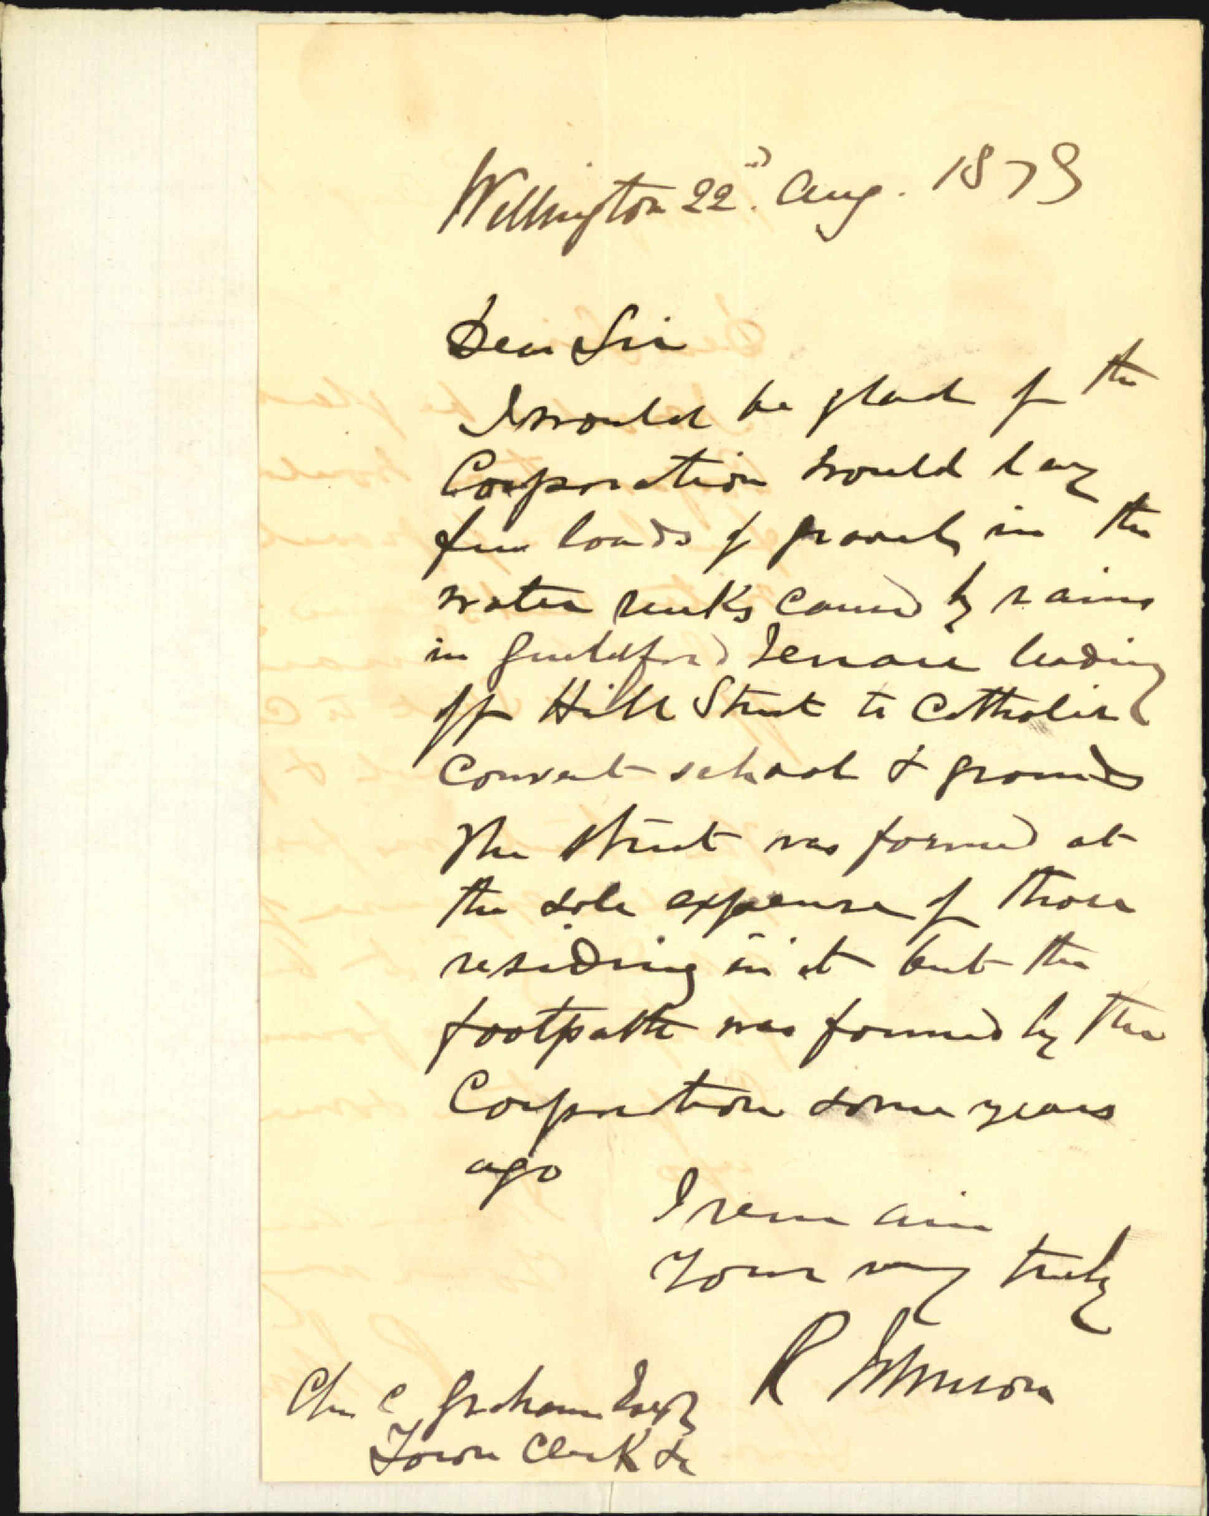 Wellington 22nd. Aug. 1879
Dear Sir
I would be glad if the
Corporation would lay
few loads of gravel, in the
water ruts caused by rains
in Guildford Terrace leading
off Hill Street to Catholic
convent school & grounds
The street was formed at
the sole expense of those
residing in it but the
footpath was formed by the
Corporation some years
ago
I remain
Yours very truly
R Johnson
C Graham Esqr
Town Clerk &c